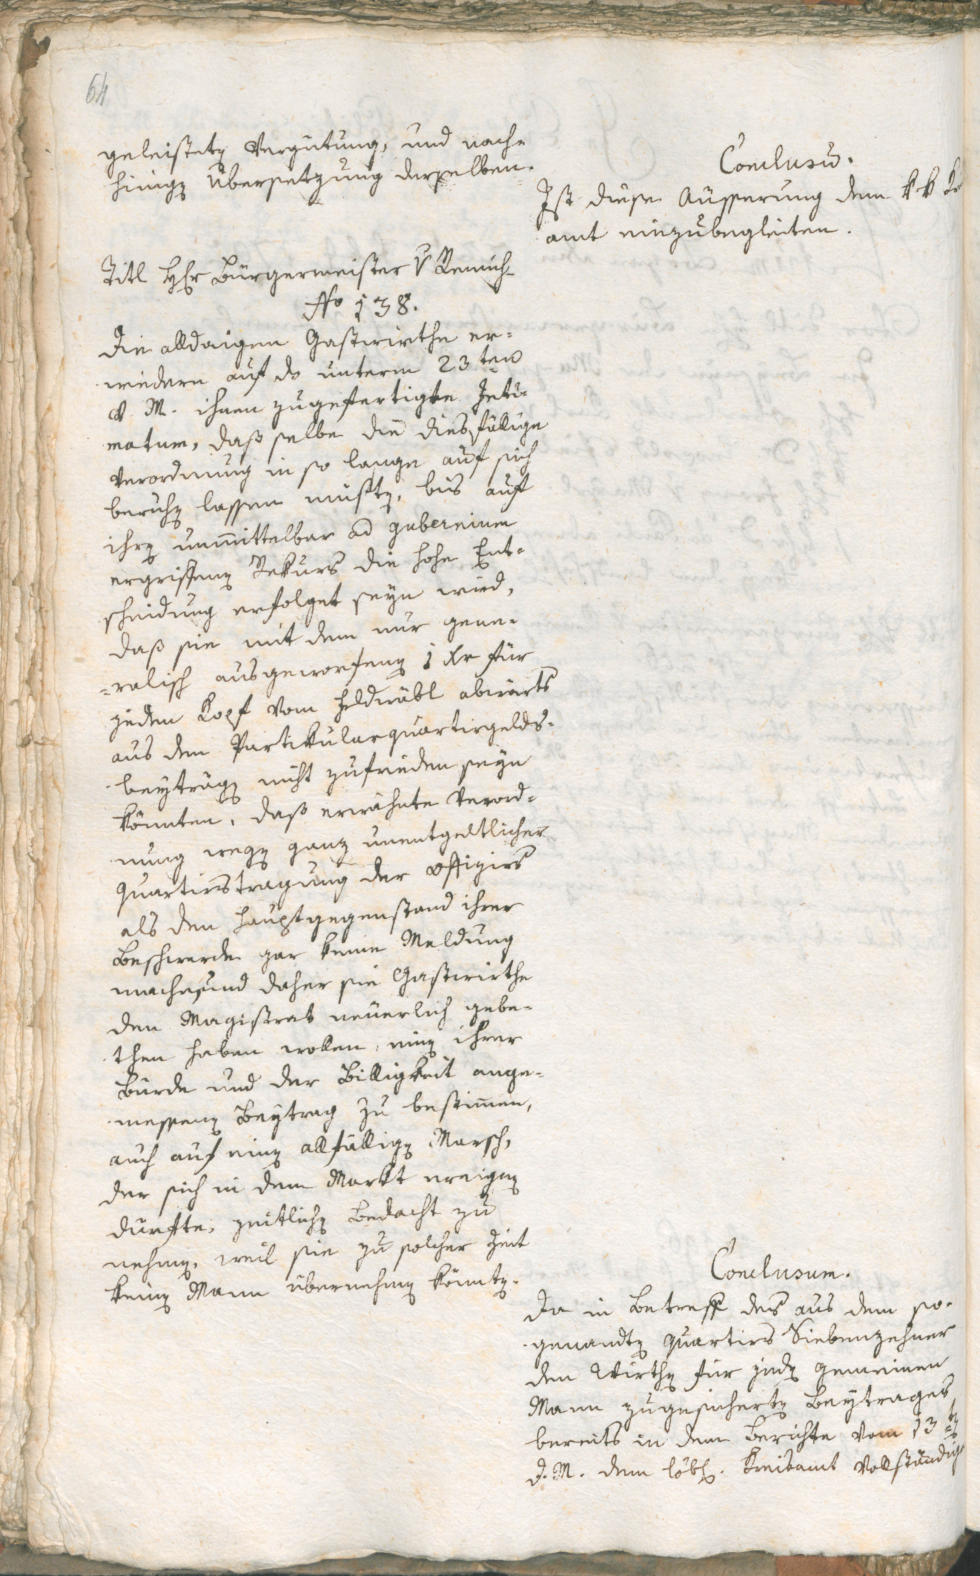 64
geleisteten Vergütung, und nach-
hinigen Übersetzung derselben.
Conclusum.
Ist diese Äusserung dem k k Kr
amt einzubegleiten.
Titl H Hr Bürgermeister v Remich
No 138.
Die alldaigen Gastwirthe er-
wiedern auf das unterm 23ten
v. M. ihnen zugefertigte Inti-
matum, daß selbe die diesfällige
Verordnung in so lange auf sich
beruhen lassen müßten, bis auf
ihren unmittelbar ad gubernium
ergriffenen Rekurs die hohe Ent-
scheidung erfolget seyn wird,
daß sie mit dem nur gene-
-ralisch ausgeworfenen 1 Xr für
jeden Kopf vom Feldwäbl abwärts
aus den Partikularquartirgelds-
beyträgen nicht zufrieden seyn
könnten, daß erwähnte Verord-
nung wegen ganz unentgeltlicher
Quartirstragung der Offizirs
als den Hauptgegenstand ihrer
Beschwerde gar keine Meldung
mache, und daher sie Gastwirthe
den Magistrat neuerlich gebe-
then haben wollen, einen ihrer
Bürde und der Billigkeit ange-
messenen Beytrag zu bestimmen,
auch auf einen allfälligen Marsch,
der sich in dem Markt ereignen
dürfte, zeitlichen Bedacht zu
nehmen, weil sie zu solcher Zeit
keinen Mann übernehmen könnten.
Conclusum.
Da in Betreff des aus dem so-
genandten Quartirs Siebenzehner
den Wirthen für jeden gemeinen
Mann zugesicherten Beytrages
bereits in dem Berichte vom 13ten
d. M. dem löbl. Kreisamt vollständig